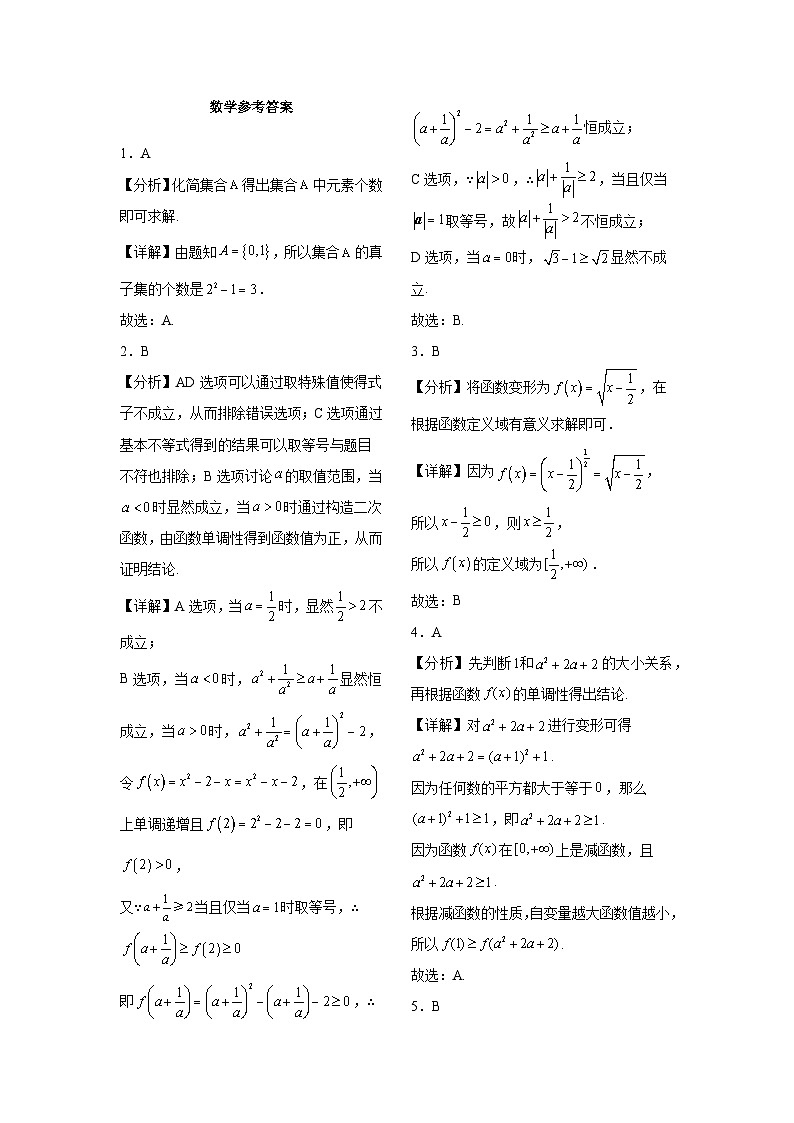 数学参考答案
1．A
【分析】化简集合A得出集合A中元素个数
即可求解.
【详解】由题知A={0,1}，所以集合A的真
子集的个数是2²−1=3．
故选：A.
2．B
【分析】AD选项可以通过取特殊值使得式
子不成立，从而排除错误选项；C选项通过
基本不等式得到的结果可以取等号与题目
不符也排除；B选项讨论a的取值范围，当
a<0时显然成立，当a>0时通过构造二次
函数，由函数单调性得到函数值为正，从而
证明结论.
【详解】A选项，当a=1/2时，显然1/2>2不
成立；
B选项，当a<0时，a²+1/a²≥a+1/a显然恒
成立，当a>0时，a²+1/a²=(a+1/a)²−2，
令f(x)=x²−2−x=x²−x−2，在(1/2,+∞)
上单调递增且f(2)=2²−2−2=0，即
f(2)>0，
又∵a+1/a≥2当且仅当a=1时取等号，∴
f(a+1/a)≥f(2)≥0
即f(a+1/a)=(a+1/a)²−(a+1/a)−2≥0，∴
(a+1/a)²−2=a²+1/a²≥a+1/a恒成立；
C选项，∵|a|>0，∴|a|+1/|a|≥2，当且仅当
|a|=1取等号，故|a|+1/|a|>2不恒成立；
D选项，当a=0时，√3−1≥√2显然不成
立.
故选：B.
3．B
【分析】将函数变形为f(x)=√(x−1/2)，在
根据函数定义域有意义求解即可．
【详解】因为f(x)=(x−1/2)^(1/2)=√(x−1/2)，
所以x−1/2≥0，则x≥1/2，
所以f(x)的定义域为[1/2,+∞)．
故选：B
4．A
【分析】先判断1和a²+2a+2的大小关系，
再根据函数f(x)的单调性得出结论.
【详解】对a²+2a+2进行变形可得
a²+2a+2=(a+1)²+1.
因为任何数的平方都大于等于0，那么
(a+1)²+1≥1，即a²+2a+2≥1.
因为函数f(x)在[0,+∞)上是减函数，且
a²+2a+2≥1.
根据减函数的性质，自变量越大函数值越小，
所以f(1)≥f(a²+2a+2).
故选：A.
5．B